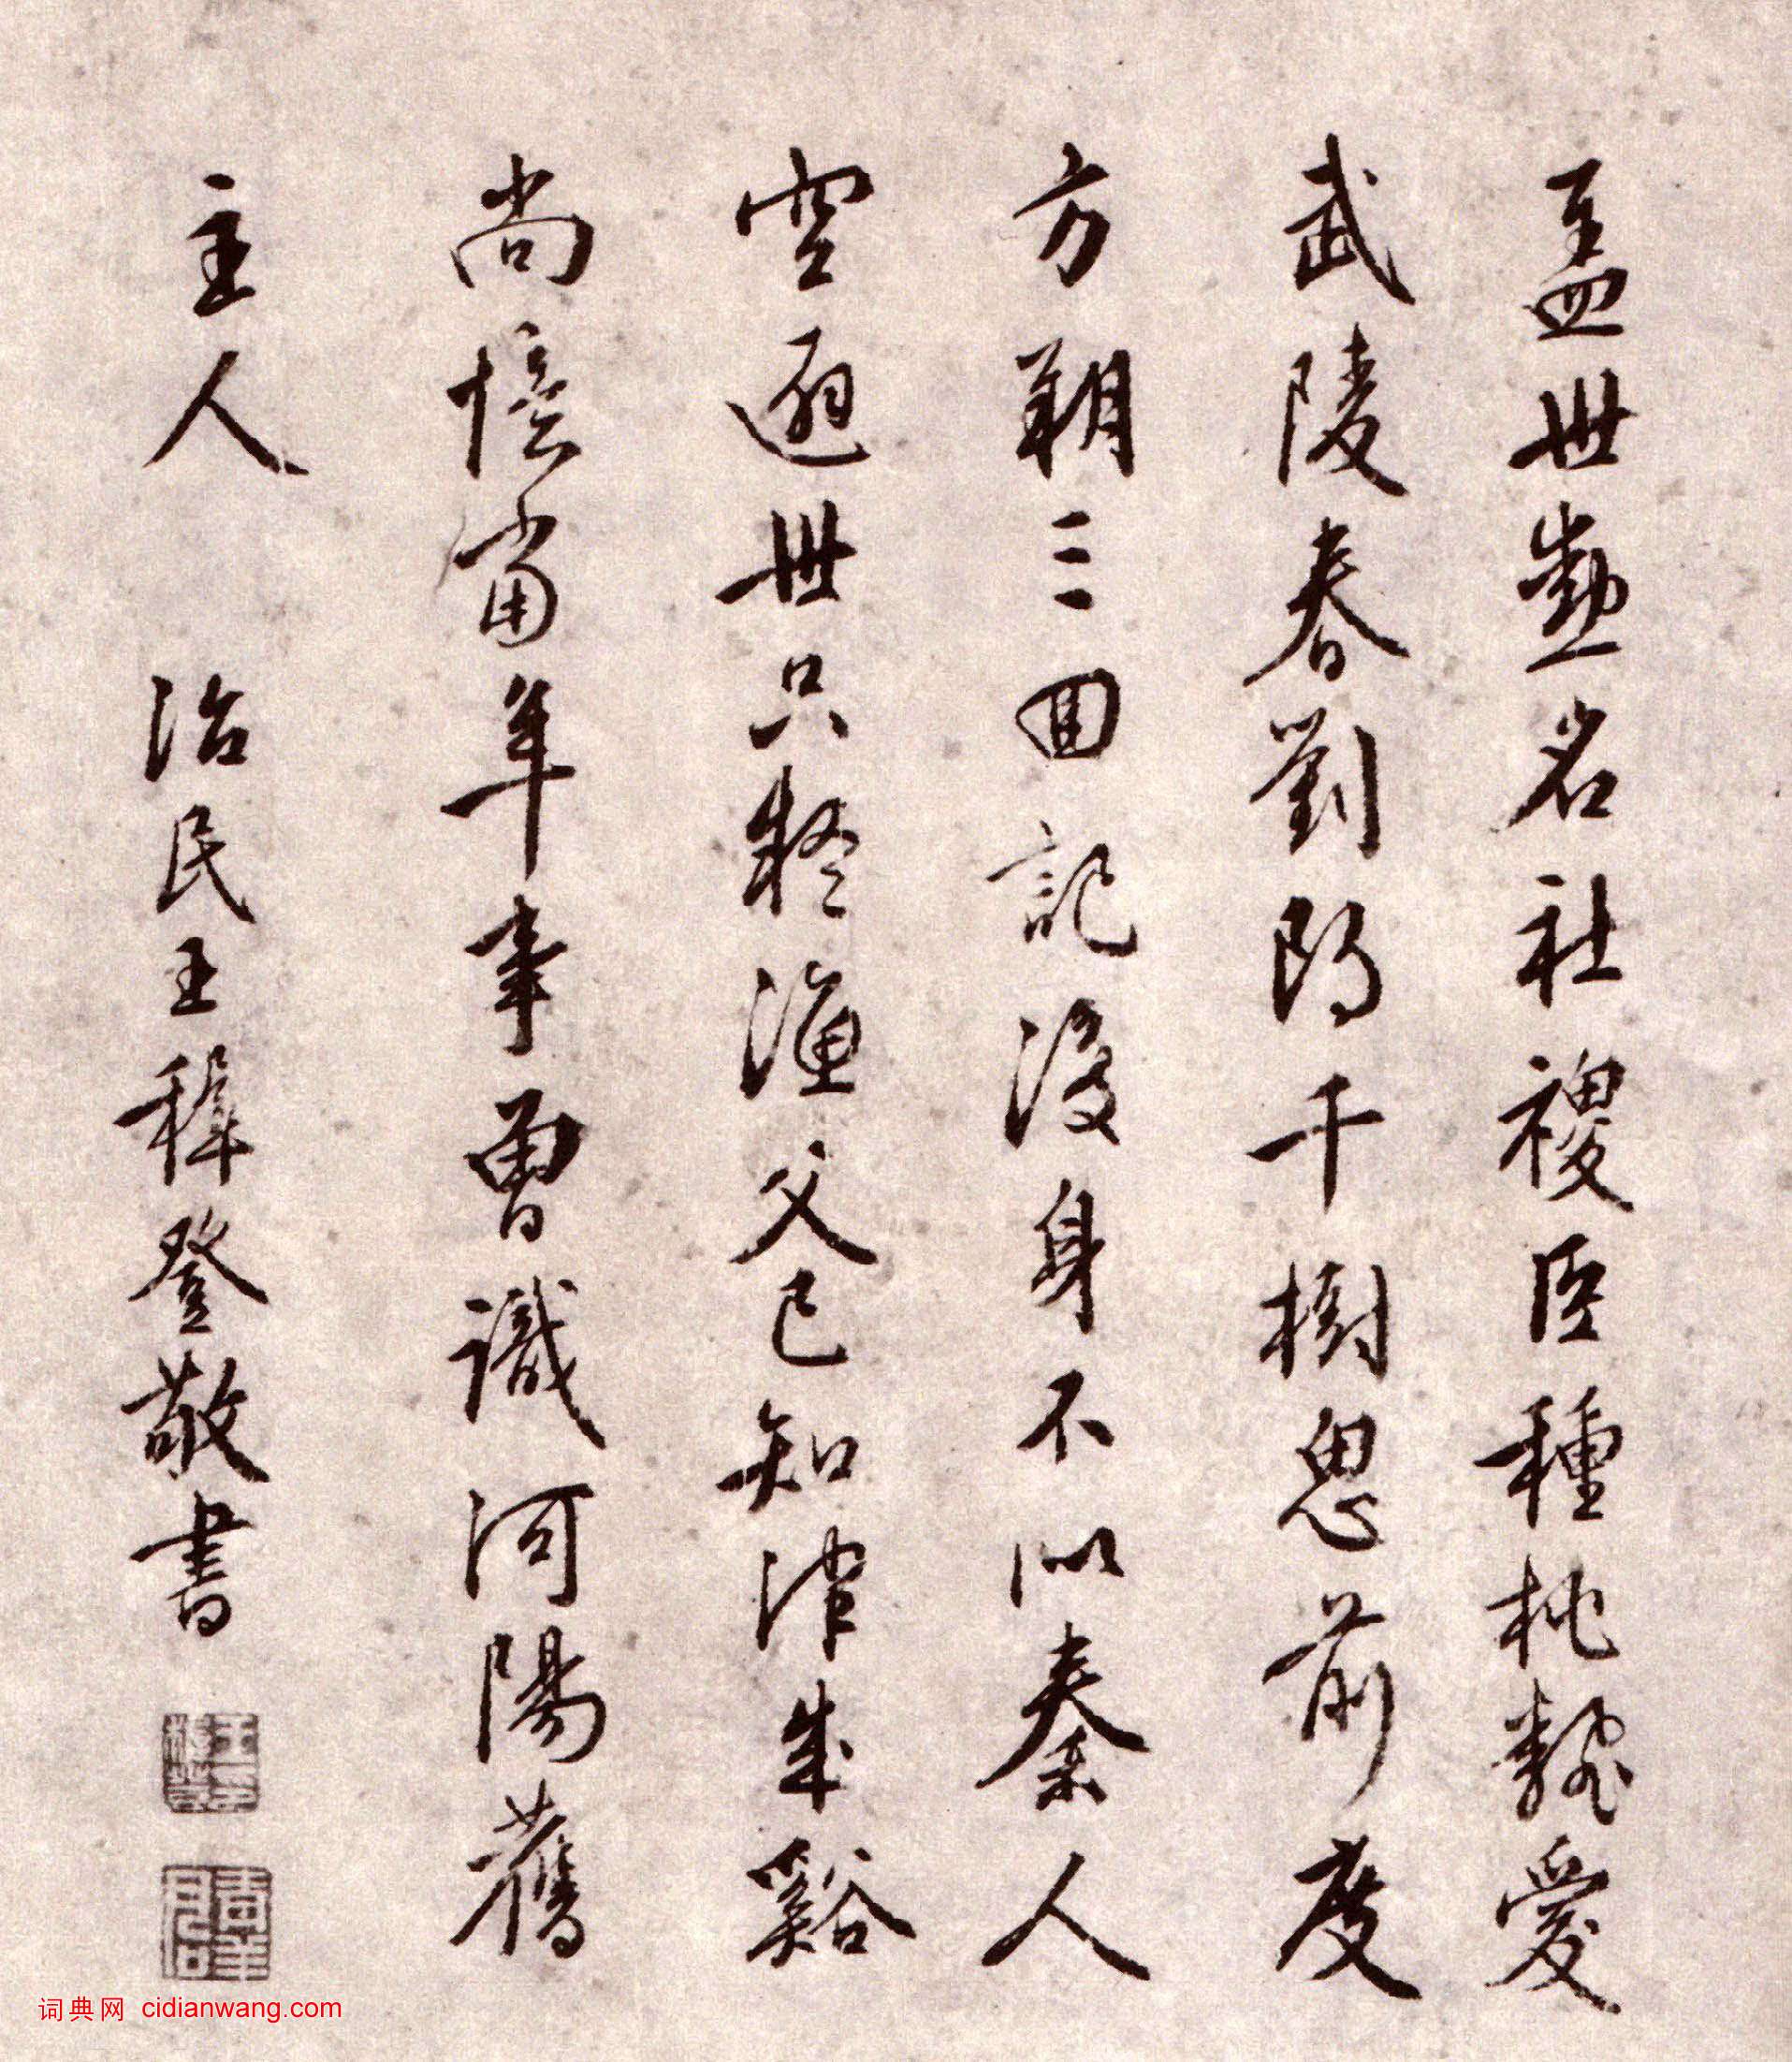 盖世勳名社稷臣種桃愛
武陵春劉郎千樹思前度
方朔三回記後身不似秦人
空避世只疑漁父已知津成谿
尚憶當年事曾識河陽舊
主人 治民王穉登敬書
词典网 cidianwang.com